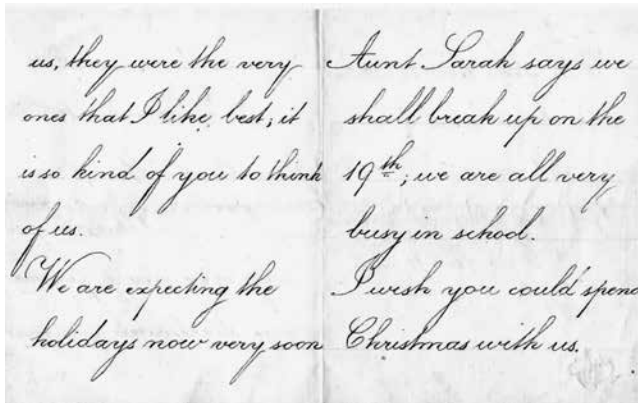 us, they were the very
ones that I like best; it
is so kind of you to think
of us.
We are expecting the
holidays now very soon
Aunt Sarah says we
shall break up on the
19th; we are all very
busy in school.
I wish you could spend
Christmas with us.